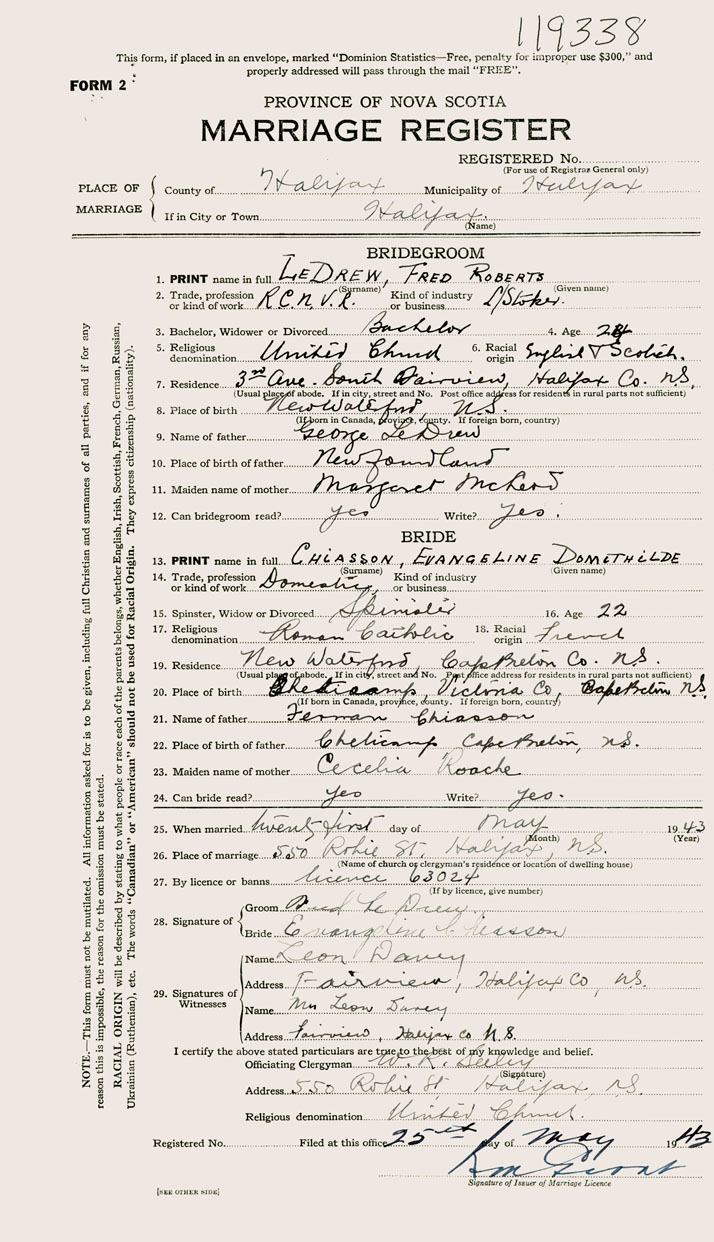 119338
This form, if placed in an envelope, marked "Dominion Statistics—Free, penalty for improper use $300," and
properly addressed will pass through the mail "FREE".
FORM 2
PROVINCE OF NOVA SCOTIA
MARRIAGE REGISTER
REGISTERED No.
(For use of Registrar General only)
PLACE OF MARRIAGE
County of Halifax Municipality of Halifax
If in City or Town Halifax.
(Name)
BRIDEGROOM
1. PRINT name in full LeDrew, Fred Roberts
(Surname) (Given name)
2. Trade, profession or kind of work R.C.N.V.R. Kind of industry or business L/Stoker.
3. Bachelor, Widower or Divorced Bachelor 4. Age
5. Religious denomination United Church 6. Racial origin English & Scotish.
7. Residence 3rd Ave. South Fairview, Halifax Co. N.S.
(Usual place of abode. If in city, street and No. Post office address for residents in rural parts not sufficient)
8. Place of birth New Waterford, N.S.
(If born in Canada, province, county. If foreign born, country)
9. Name of father George LeDrew
10. Place of birth of father Newfoundland
11. Maiden name of mother Margaret McLeod
12. Can bridegroom read? yes Write? Yes.
BRIDE
13. PRINT name in full Chiasson, Evangeline Domethilde
(Surname) (Given name)
14. Trade, profession or kind of work Domestic, Kind of industry or business
15. Spinster, Widow or Divorced Spinister 16. Age 22
17. Religious denomination Roman Catholic 18. Racial origin French
19. Residence New Waterford, Cape Breton Co. N.S.
(Usual place of abode. If in city, street and No. Post office address for residents in rural parts not sufficient)
20. Place of birth Cheticamp, Victoria Co, Cape Breton N.S.
(If born in Canada, province, county. If foreign born, country)
21. Name of father Ferman Chiasson
22. Place of birth of father Cheticamp Cape Breton, N.S.
23. Maiden name of mother Cecelia Roache
24. Can bride read? yes Write? yes.
25. When married twenty first day of May 1943
(Month) (Year)
26. Place of marriage 550 Robie St. Halifax, N.S.
(Name of church or clergyman's residence or location of dwelling house)
27. By licence or banns licence 63024
(If by licence, give number)
28. Signature of
Groom Le Drew.
Bride Evangeline Chiasson
29. Signatures of Witnesses
Name Leon Davey
Address Fairview, Halifax Co, N.S.
Name Mrs Leon Davey
Address Fairview, Halifax Co N.S.
I certify the above stated particulars are true to the best of my knowledge and belief.
Officiating Clergyman W. R. Seeley
(Signature)
Address 550 Robie St. Halifax, N.S.
Religious denomination United Church.
Registered No. Filed at this office 25th day of May 1943
Signature of Issuer of Marriage Licence
[SEE OTHER SIDE]
NOTE.—This form must not be mutilated. All information asked for is to be given, including full Christian and surnames of all parties, and if for any
reason this is impossible, the reason for the omission must be stated.
RACIAL ORIGIN will be described by stating to what people or race each of the parents belongs, whether English, Irish, Scottish, French, German, Russian,
Ukrainian (Ruthenian), etc. The words "Canadian" or "American" should not be used for Racial Origin. They express citizenship (nationality).